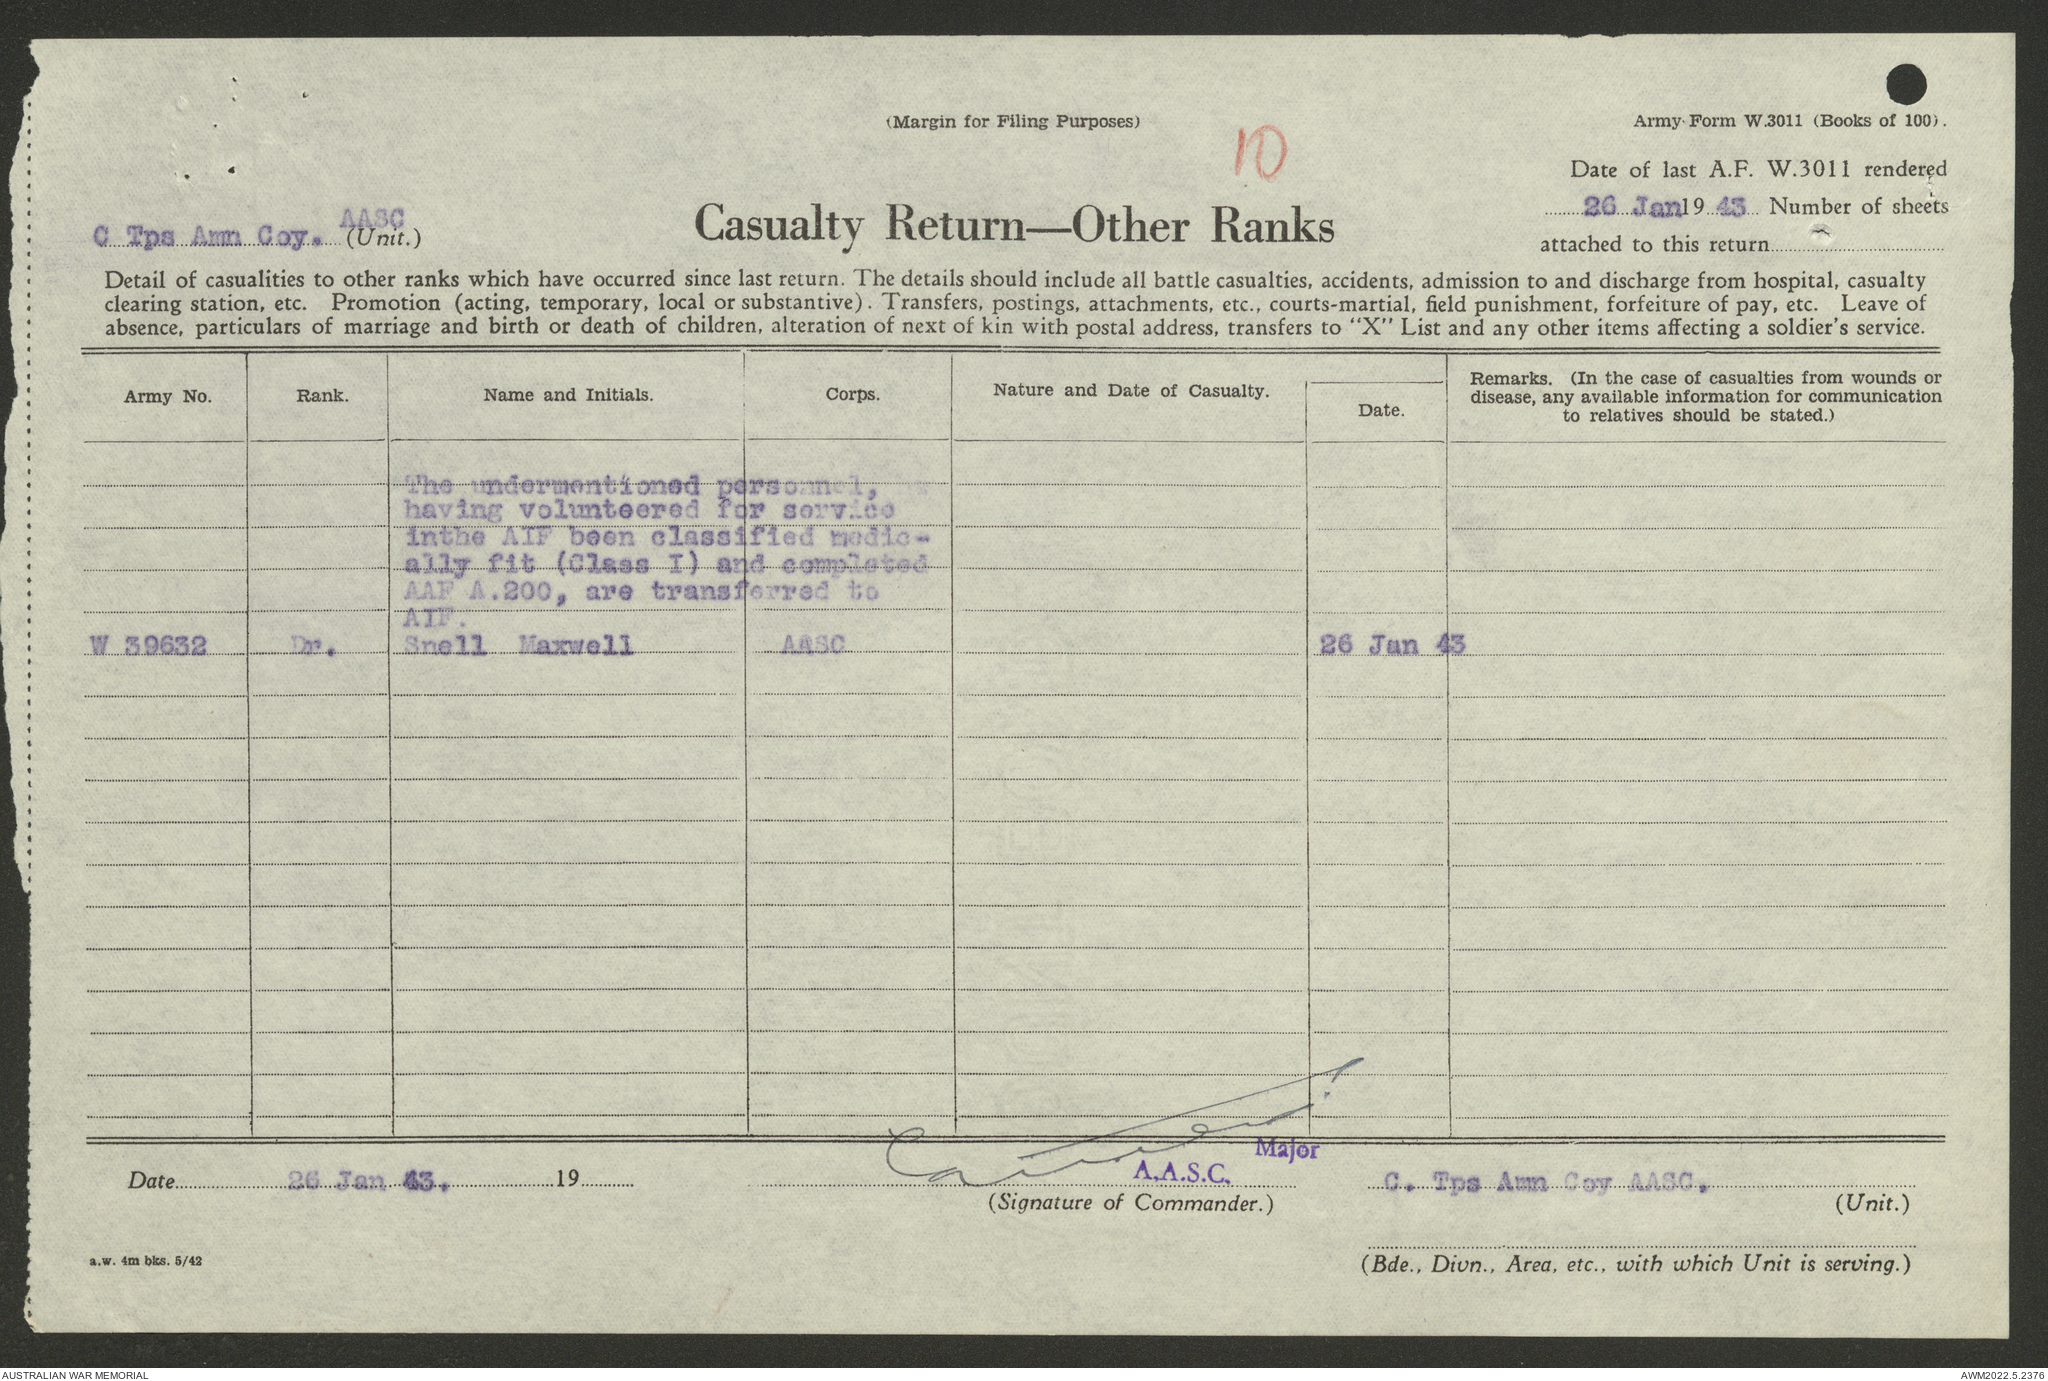 (Margin for Filing Purposes)
Army Form W.3011 (Books of 100).
10
Date of last A.F. W.3011 rendered
26 Jan 19 43 Number of sheets
attached to this return
C Tps Amn Coy. AASC (Unit.)
Casualty Return—Other Ranks
Detail of casualities to other ranks which have occurred since last return. The details should include all battle casualties, accidents, admission to and discharge from hospital, casualty
clearing station, etc. Promotion (acting, temporary, local or substantive). Transfers, postings, attachments, etc., courts-martial, field punishment, forfeiture of pay, etc. Leave of
absence, particulars of marriage and birth or death of children, alteration of next of kin with postal address, transfers to "X" List and any other items affecting a soldier's service.
Army No. Rank. Name and Initials. Corps. Nature and Date of Casualty. Date. Remarks. (In the case of casualties from wounds or
disease, any available information for communication
to relatives should be stated.)
The undermentioned personnel,
having volunteered for service
inthe AIF been classified medic-
ally fit (Class I) and completed
AAF A.200, are transferred to
AIF.
W 39632 Dr. Snell Maxwell AASC 26 Jan 43
Major
A.A.S.C.
Date 26 Jan 43. 19
(Signature of Commander.)
C. Tps Amn Coy AASC.
(Unit.)
a.w. 4m bks. 5/42
(Bde., Divn., Area, etc., with which Unit is serving.)
AUSTRALIAN WAR MEMORIAL
AWM2022.5.2376